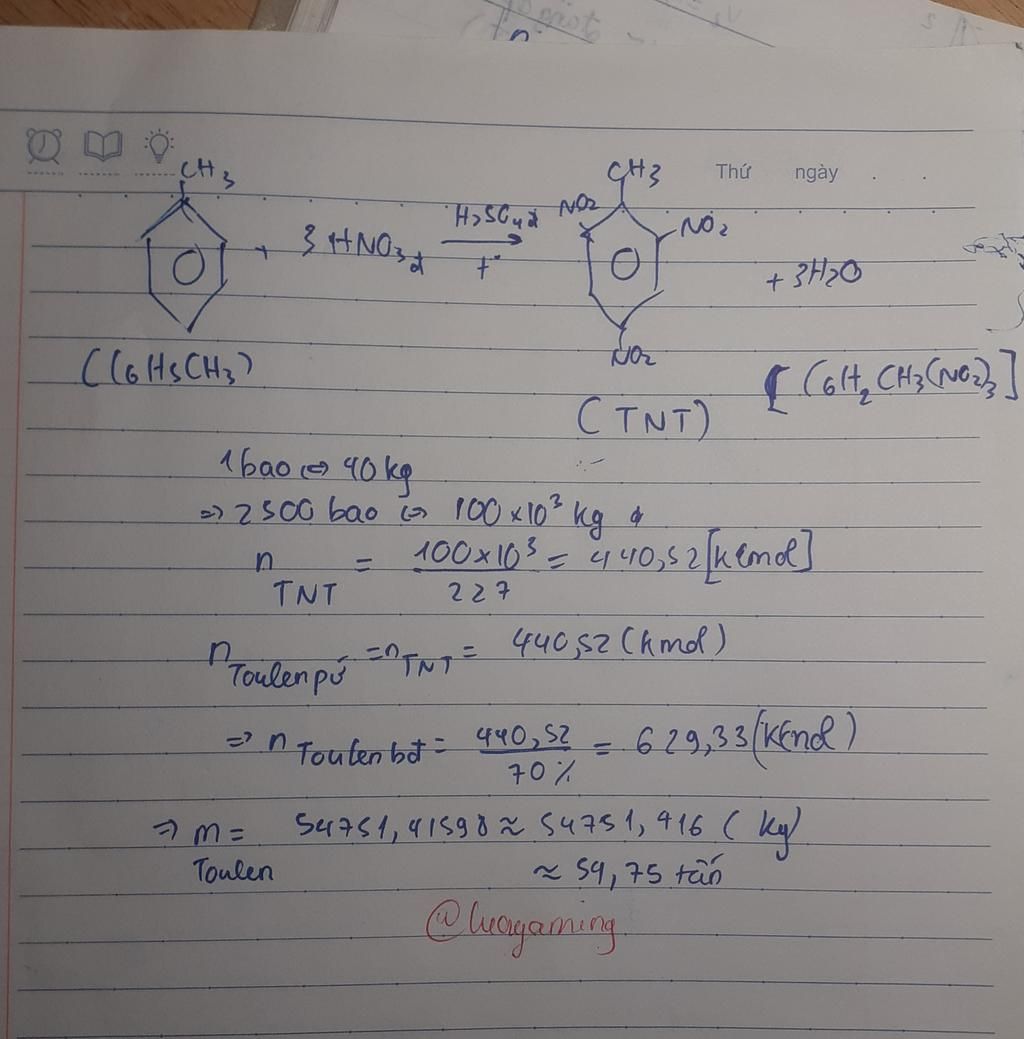 Thứ ngày
CH3 CH3
NO2 NO2
+ 3HNO3đ H2SO4đ t° + 3H2O
NO2
(C6H5CH3) [C6H2CH3(NO2)3]
(TNT)
1 bao ⇔ 40 kg
⇒ 2500 bao ⇔ 100×10³ kg
n TNT = 100×10³ / 227 = 440,52 [kmol]
n Toulen pứ = n TNT = 440,52 (kmol)
⇒ n Toulen bđ = 440,52 / 70% = 629,33 (kmol)
⇒ m Toulen = 54751,41598 ≈ 54751,416 (kg)
≈ 54,75 tấn
@luagaming